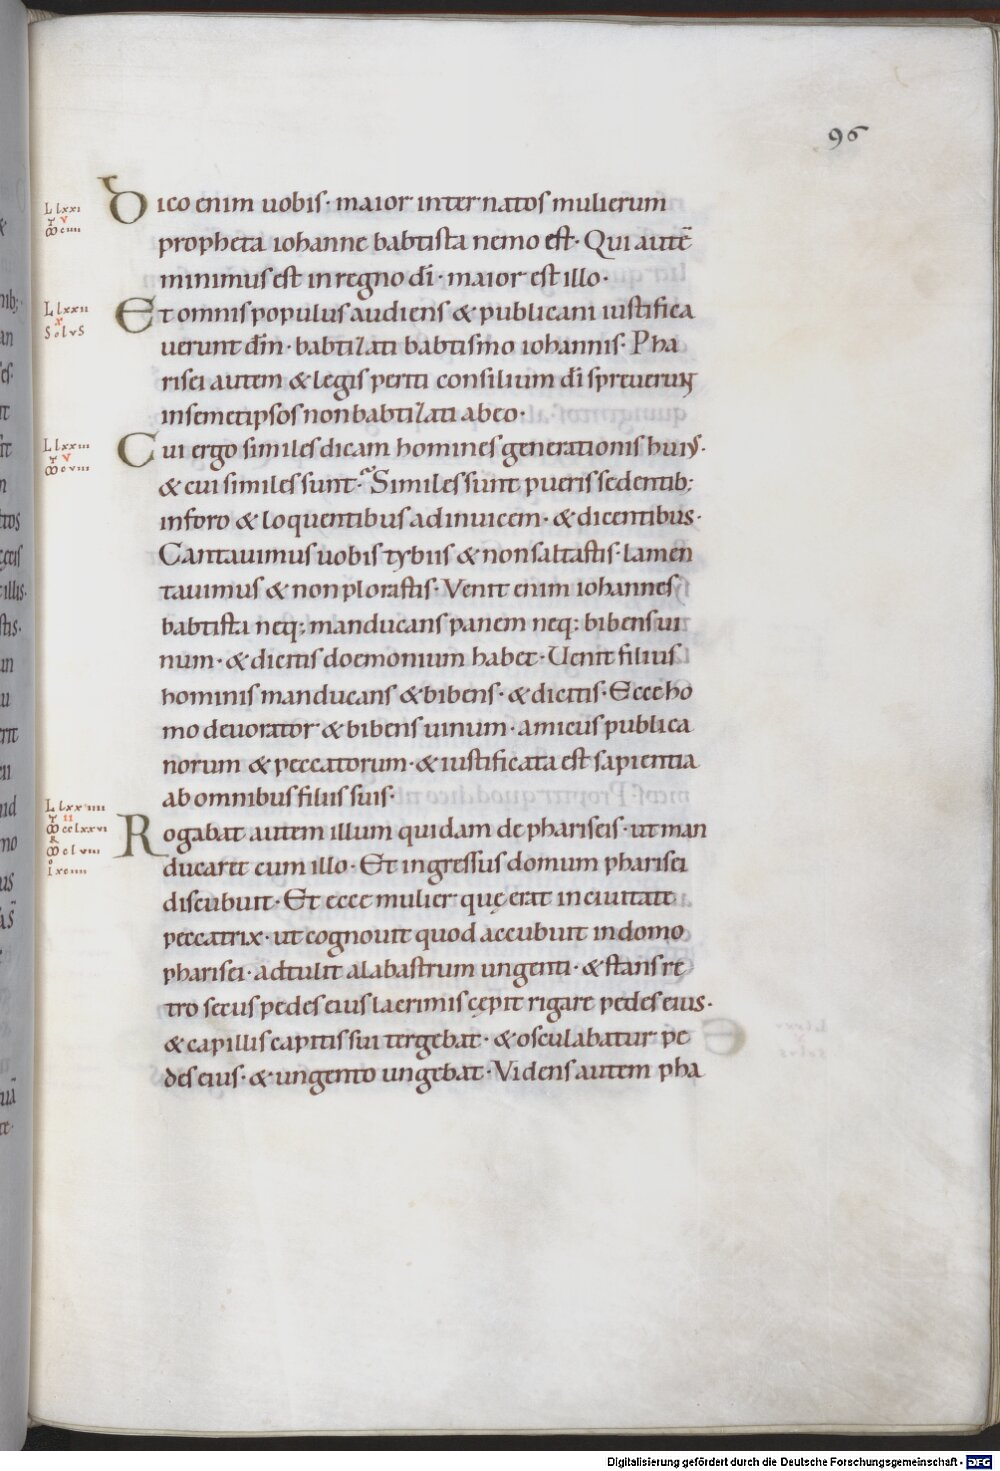 96
L lxxi
Dico enim uobis· maior inter natos mulierum
propheta iohanne babtista nemo est· Qui autē
minimus est in regno dī· maior est illo·
L lxxii
X
SolvS
Et omnis populus audiens & publicani iustifica
uerunt dm̄· babtizati babtismo iohannis· Pha
risei autem & legis periti consilium dī spreuerunt
in semetipsos non babtizati ab eo·
L lxxiii
Cui ergo similes dicam homines generationis huius·
& cui similes sunt· Similes sunt pueris sedentib;
in foro & loquentibus ad inuicem· & dicentibus·
Cantauimus uobis tybiis & non saltastis· lamen
tauimus & non plorastis· Venit enim iohannes
babtista neq; manducans panem neq; bibens ui
num· & dicitis doemonium habet· Uenit filius
hominis manducans & bibens· & dicitis· Ecce ho
mo deuorator & bibens uinum· amicus publica
norum & peccatorum· & iustificata est sapientia
ab omnibus filiis suis·
L lxxiiii
Rogabat autem illum quidam de phariseis· ut man
ducaret cum illo· Et ingressus domum pharisei
discubuit· Et ecce mulier quę erat in ciuitate
peccatrix· ut cognouit quod accubuit in domo
pharisei· adtulit alabastrum ungenti· & stans re
tro secus pedes eius lacrimis cępit rigare pedes eius·
& capillis capitis sui tergebat· & osculabatur pe
des eius· & ungento ungebat· Videns autem pha
Digitalisierung gefördert durch die Deutsche Forschungsgemeinschaft - DFG